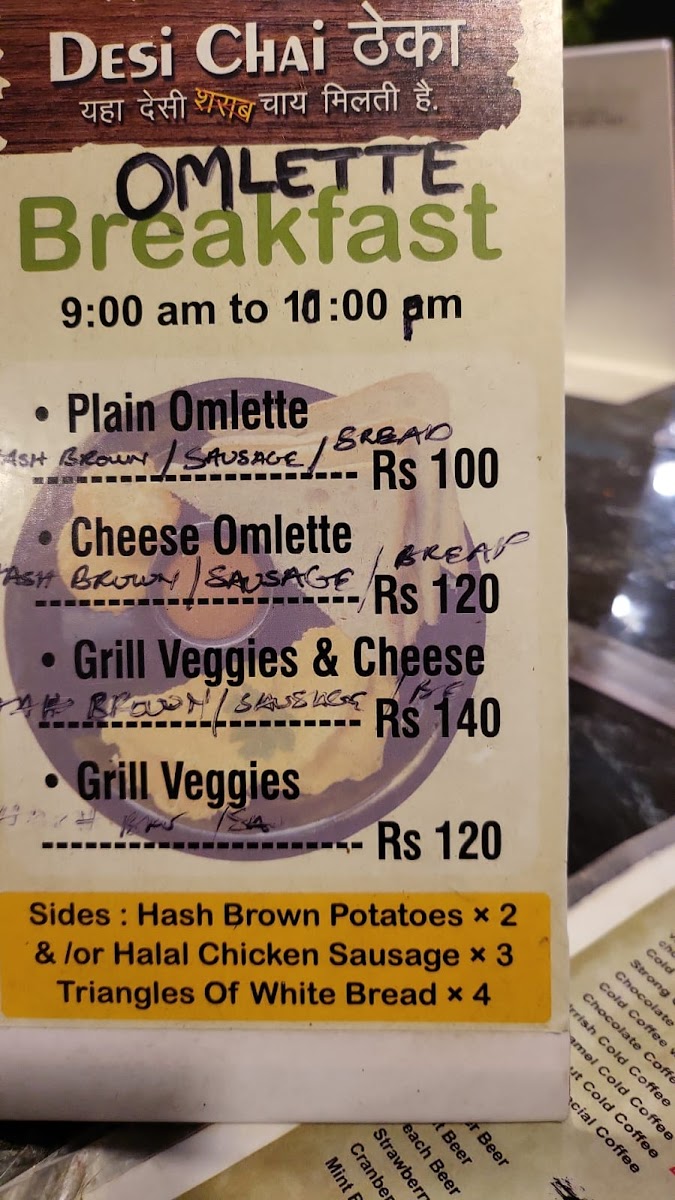 DESi CHAi ठेका
यहा देसी शराब चाय मिलती है.
OMLETTE
Breakfast
9:00 am to 11:00 pm
• Plain Omlette
ASH BROWN / SAUSAGE / BREAD
Rs 100
• Cheese Omlette
ASH BROWN / SAUSAGE / BREAD
Rs 120
• Grill Veggies & Cheese
BROWN / SAUSAGE / BE
Rs 140
• Grill Veggies
Rs 120
Sides : Hash Brown Potatoes × 2
& /or Halal Chicken Sausage × 3
Triangles Of White Bread × 4
Cold
Strong
Chocolate
Cold Coffee
Chocolate Coffe
rrish Cold Coffee
mel Cold Coffee
ut Cold Coffee
cial Coffee
r Beer
t Beer
each Beer
Strawberr
Cranber
Mint